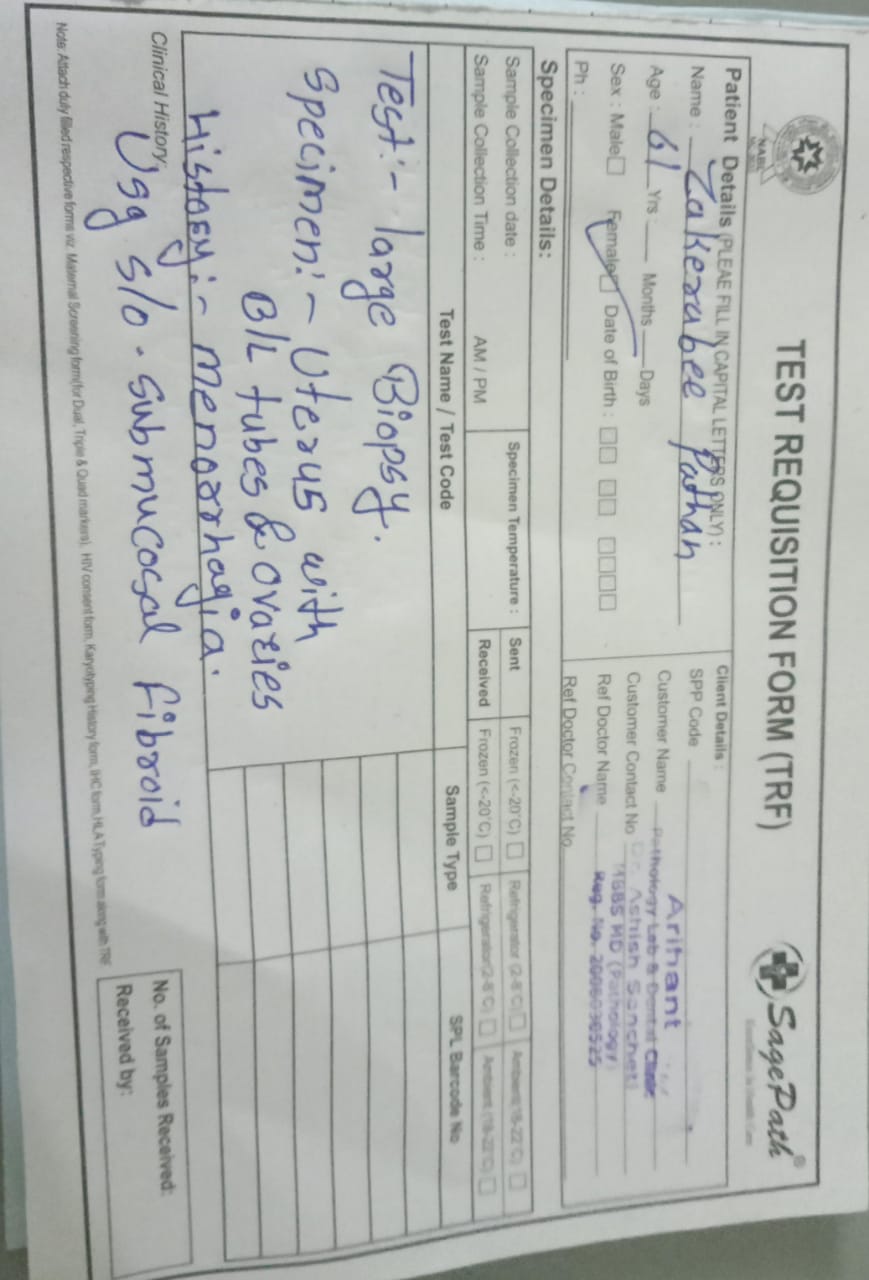 TEST REQUISITION FORM (TRF)
NABL
SagePath®
Patient Details (PLEAE FILL IN CAPITAL LETTERS ONLY) :
Name : Zakerabee Pathan
Age : 61 Yrs : Months Days
Sex : Male Female Date of Birth :
Ph :
Client Details :
SPP Code
Customer Name
Customer Contact No
Ref Doctor Name
Ref Doctor Contact No
Arihant
Pathology Lab & Dental Clinic
Dr. Ashish Sancheti
MBBS MD (Pathology)
Reg. No.
Specimen Details:
Sample Collection date :
Sample Collection Time : AM / PM
Specimen Temperature :
Sent Frozen (<-20°C) Refrigerator (2-8°C) Ambient (18-22°C)
Received Frozen (<-20°C) Refrigerator (2-8°C) Ambient (18-22°C)
Test Name / Test Code Sample Type SPL Barcode No
Test:- large Biopsy.
Specimen:- Uterus with
B/L tubes & ovaries
History:- menorrhagia.
Clinical History: Usg s/o - submucosal fibroid
No. of Samples Received:
Received by:
Note: Attach duly filled respective forms viz. Maternal Screening form(for Dual, Triple & Quad markers), HIV consent form, Karyotyping History form, IHC form, HLA Typing form along with TRF